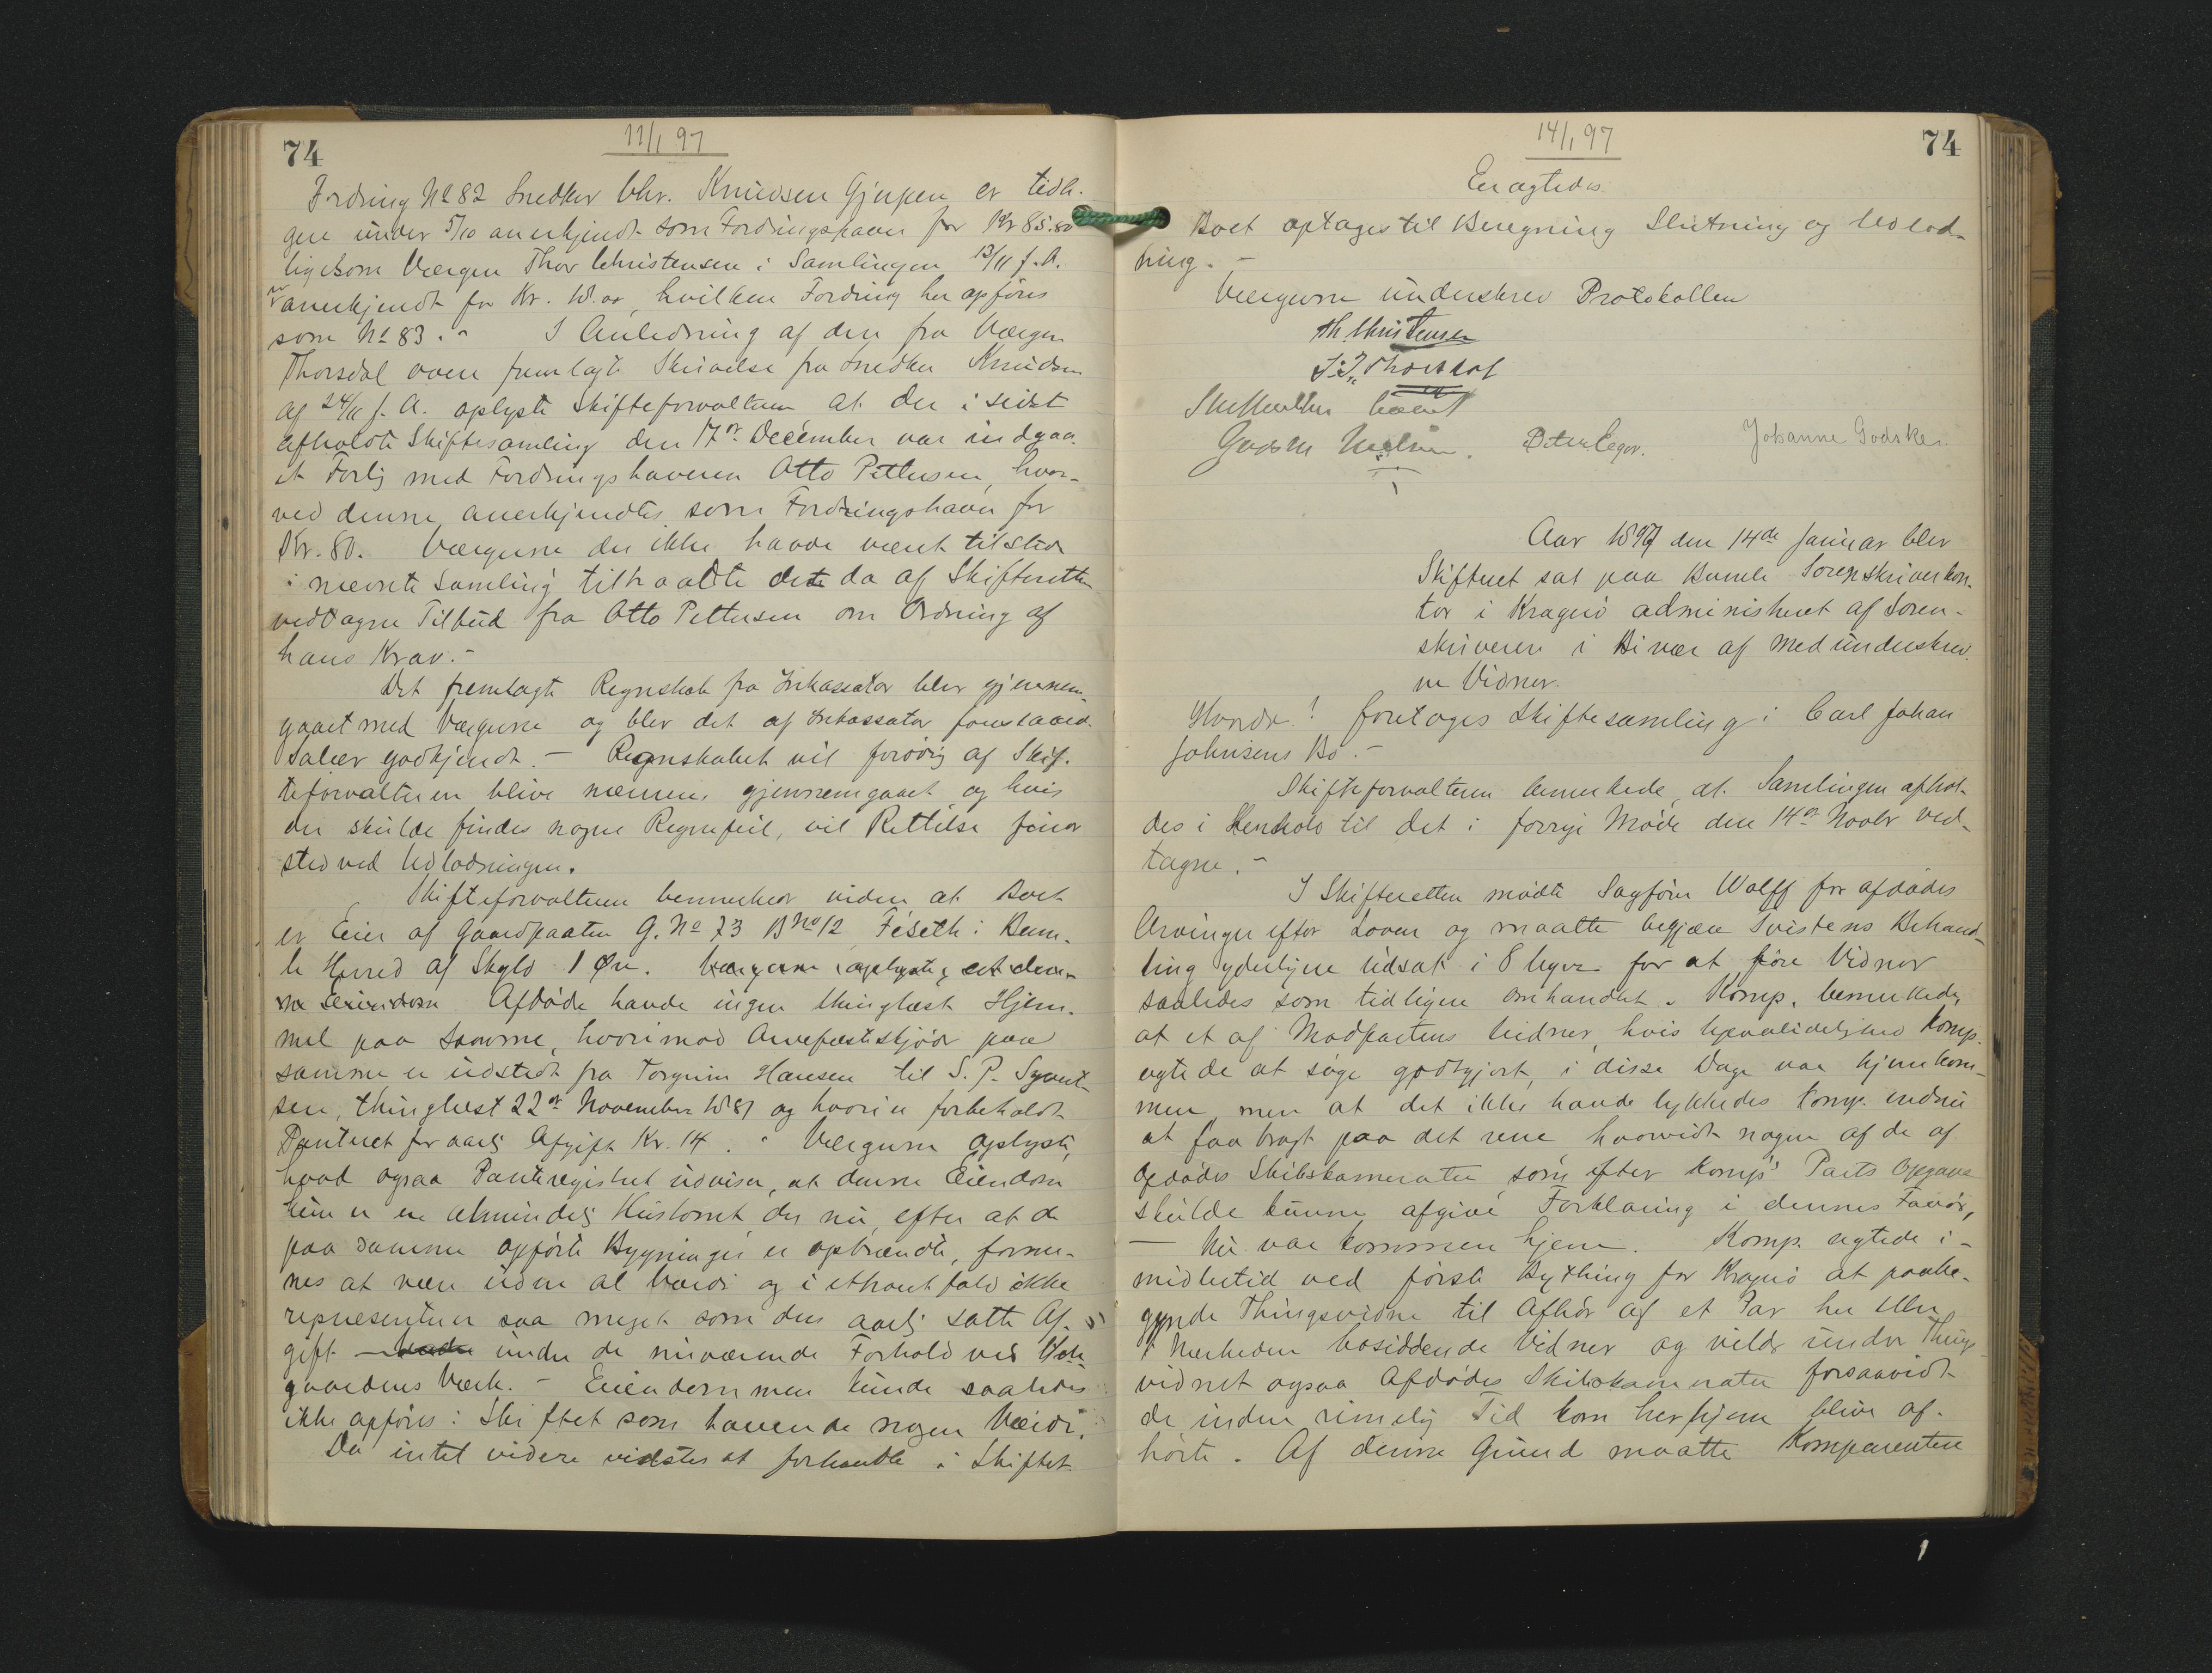 74
11/1 97
Fordring No 82 Snedker Chr. Knudsen Gjerpen er tidli-
gere under 5/10 anerkjendt som Fordringshaver for Kr 85.80
ligesom Værgen Thor Christensen i Samlingen 13/11 f. A.
er anerkjendt for Kr. 10.00, hvilken Fordring her opføres
som No 83. - I Anledning af den fra Værgen
Thorsdal over fremlagte Skrivelse fra Snedker Knudsen
af 24/11 f. A. oplyste Skifteforvalteren at der i sidst
afholdte Skiftesamling den 17de December var indgaaet
et Forlig med Fordringshaveren Otto Pettersen, hvor-
ved denne anerkjendtes som Fordringshaver for
Kr. 80. Værgerne der ikke havde været tilstede
i nævnte Samling tiltraadte dette da af Skifteretten
vedtagne Tilbud fra Otto Pettersen om Ordning af
hans Krav. -
Det fremlagte Regnskab fra Inkassator blev gjennem-
gaaet med Værgerne og blev det af Inkassator foreslaaede
Salær godkjendt. - Regnskabet vil forøvrig af Skif-
teforvalteren blive nærmere gjennemgaaet og hvis
der skulde findes nogen Regnefeil, vil Rettelse finde
sted ved Udlodningen.
Skifteforvalteren bemærker viden at Boet
er Eier af Gaardparten G. No 73 B No 12 Feseth i Bam-
le Herred af Skyld 1 Øre. Værgerne oplyste, at den-
ne Eiendom Afdøde havde ingen thinglæst Hjem-
mel paa samme, hvorimod Arvefæsteskjøde paa
samme er udstedt fra Torgrim Hansen til S. P. Syvert-
sen, thinglæst 22de November 1881 og hvori er forbeholdt
Panteret for aarlig Afgift Kr. 14. - Værgerne oplyste,
hvad ogsaa Panteregistret udviser, at denne Eiendom
kun er en almindelig Hustomt der nu, efter at de
paa samme opførte Bygninger er opbrændte, forme-
nes at være uden al Værdi og i ethvert fald ikke
representerer saa meget som den aarlig satte Af-
gift under de nuværende Forhold ved
gaardens Værk. - Eiendommen kunde saaledes
ikke opføres i Skiftet som havende nogen Værdi.
Da intet videre vidstes at forhandle i Skiftet
74
14/1 97
Eragtedes
Boet optages til Beregning Slutning og Udlod-
ning. -
Værgerne underskrev Protokollen
Th. Christensen
Thorsdal
Johanne Godskes.
Aar 1897 den 14de Januar blev
Skifteret sat paa Bamle Sorenskriverkon-
tor i Kragerø administreret af Soren-
skriveren i Bivær af medunderskrev-
ne Vidner.
Hvorda! foretoges Skiftesamling i Carl Johan
Johnsens Bo. -
Skifteforvalteren bemærkede, at Samlingen afhol-
des i Henhold til det i forrige Møde den 14de Novbr ved-
tagne. -
I Skifteretten mødte Sagfører Wolff for afdødes
Arvinger efter Loven og maatte begjære Tvistens Behand-
ling yderligere udsat i 8 Uger for at føre Vidner
saaledes som tidligere omhandlet. Komp. bemærkede,
at et af Modpartens Vidner, hvis Upaalidelighed Komp.
agtede at søge godtgjort, i disse Dage var hjemkom-
men, men at det ikke havde lykkedes Komp. endnu
at faa bragt paa det rene hvorvidt nogen af de af
Afdødes Skibskamerater som efter Komp's Parts Opgave
skulde kunne afgive Forklaring i dennes Favør,
- Nu var kommen hjem. Komp. agtede i-
midlertid ved første Bything for Kragerø at paabe-
gynde Thingsvidne til Afhør af et Par her eller
i Nærheden bosiddende Vidner og vilde under Things-
vidnet ogsaa Afdødes Skibskamerater forsaavidt
de inden rimelig Tid kom her hjem blive af-
hørte. Af denne Grund maatte Komparenten